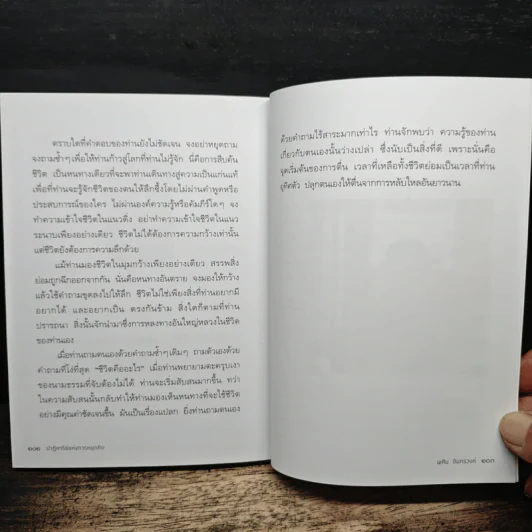 ตราบใดที่คำตอบของท่านยังไม่ชัดเจน จงอย่าหยุดถาม
จงถามซ้ำๆ เพื่อให้ท่านก้าวสู่โลกที่ท่านไม่รู้จัก นี่คือการสืบค้น
ชีวิต เป็นหนทางเดียวที่จะพาท่านเดินทางสู่ความเป็นแก่นแท้
เพื่อที่ท่านจะรู้จักชีวิตของตนให้ลึกซึ้งโดยไม่ผ่านคำพูดหรือ
ประสบการณ์ของใคร ไม่ผ่านองค์ความรู้หรือคัมภีร์ใดๆ จง
ทำความเข้าใจชีวิตในแนวดิ่ง อย่าทำความเข้าใจชีวิตในแนว
ระนาบเพียงอย่างเดียว ชีวิตไม่ได้ต้องการความกว้างเท่านั้น
แต่ชีวิตยังต้องการความลึกด้วย
แม้ท่านมองชีวิตในมุมกว้างเพียงอย่างเดียว สรรพสิ่ง
ย่อมถูกฉีกออกจากกัน นั่นคือหนทางอันตราย จงมองให้กว้าง
แล้วใช้คำถามขุดลงไปให้ลึก ชีวิตไม่ใช่เพียงสิ่งที่ท่านอยากมี
อยากได้ และอยากเป็น ตรงกันข้าม สิ่งใดก็ตามที่ท่าน
ปรารถนา สิ่งนั้นจักนำมาซึ่งการหลงทางอันใหญ่หลวงในชีวิต
ของท่านเอง
เมื่อท่านถามตนเองด้วยคำถามซ้ำๆ เดิมๆ ถามตัวเองด้วย
คำถามที่โง่ที่สุด “ชีวิตคืออะไร” เมื่อท่านพยายามตะครุบเงา
ของนามธรรมที่จับต้องไม่ได้ ท่านจะเริ่มสับสนมากขึ้น ทว่า
ในความสับสนนั้นกลับทำให้ท่านมองเห็นหนทางที่จะใช้ชีวิต
อย่างมีคุณค่าชัดเจนขึ้น มันเป็นเรื่องแปลก ยิ่งท่านถามตนเอง
๒๐๒ ปาฏิหาริย์แห่งการหยุดคิด
ด้วยคำถามไร้สาระมากเท่าไร ท่านจักพบว่า ความรู้ของท่าน
เกี่ยวกับตนเองนั้นว่างเปล่า ซึ่งนับเป็นสิ่งที่ดี เพราะนั่นคือ
จุดเริ่มต้นของการตื่น เวลาที่เหลือทั้งชีวิตย่อมเป็นเวลาที่ท่าน
อุทิศตัว ปลุกตนเองให้ตื่นจากการหลับใหลอันยาวนาน
จันทรวงค์ ๒๐๓